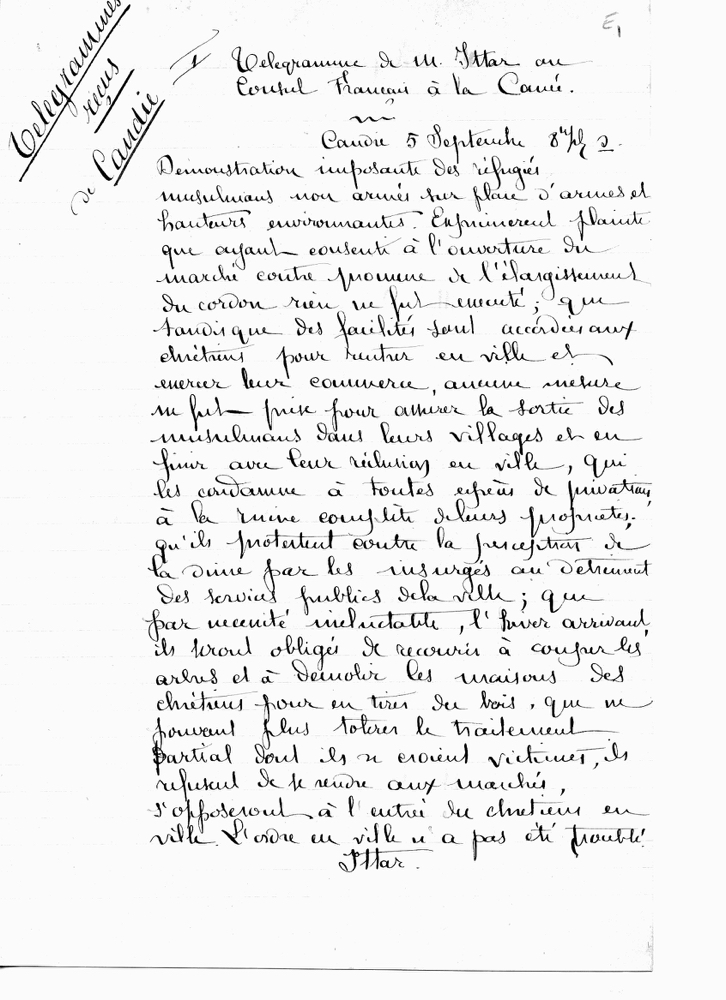 E1
Telegrammes
reçus
de Candie
I Telegramme de M. Ittar au
Consul Français à la Canée.
Candie 5 Septembre 8
Demonstration imposante des réfugiés
musulmans non armés sur place d'armes et
hauteurs environnantes. Exprimerent plainte
que ayant consenti à l'ouverture du
marché contre promesse de l'élargissement
du cordon rien ne fut executé; que
tandisque des facilités sont accordées aux
chrétiens pour rentrer en ville et
exercer leur commerce, aucune mesure
ne fut prise pour assurer la sortie des
musulmans dans leurs villages et en
finir avec leur réclusion en ville, qui
les condamne à toutes espèces de privations,
à la ruine complète de leurs proprietés;
qu'ils protestent contre la perception de
la dime par les insurgés au détriment
des services publics de la ville; que
par necessité ineluctable, l'hiver arrivant,
ils seront obligés de recourir à couper les
arbres et à démolir les maisons des
chrétiens pour en tirer du bois, que ne
pouvant plus tolerer le traitement
partial dont ils se croient victimes, ils
refusent de se rendre aux marchés,
s'opposeront à l'entrée du chretiens en
ville. L'ordre en ville n'a pas été troublé.
Ittar.